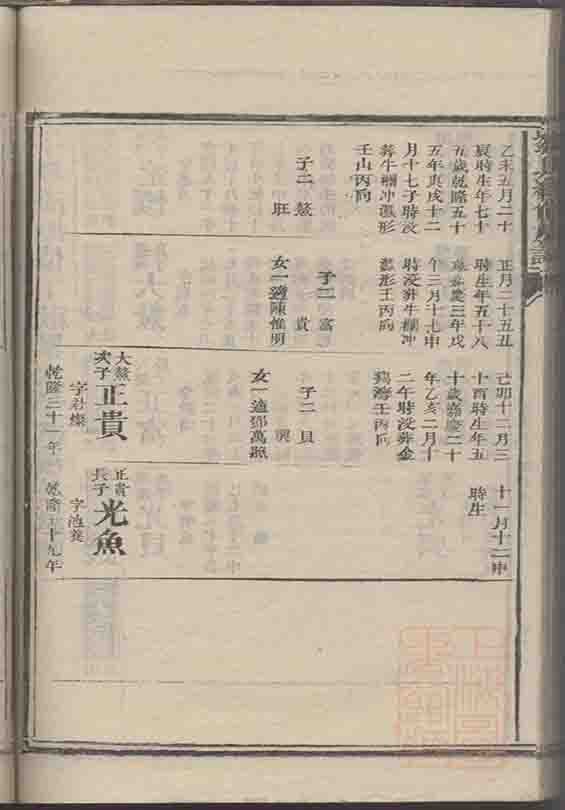 乙未五月二十
辰時生年七十
五歲乾隆五十
五年庚戌十二
月十七子時沒
葬牛欄冲形
壬山丙向
子二 鰲
旺
正月二十五丑
時生年五十八
歲嘉慶三年戊
午三月十七申
時沒葬牛欄冲
形壬丙向
子二 富
貴
女一適陳惟明
己卯十二月三
十酉時生年五
十歲嘉慶二十
年乙亥二月十
二午時沒葬金
鷄灣壬丙向
子二 貝
興
女一適鄧萬照
大鰲次子正貴
字君燦
乾隆三十一年
十一月十二申
時生
正貴長子光魚
字池養
乾隆五十九年